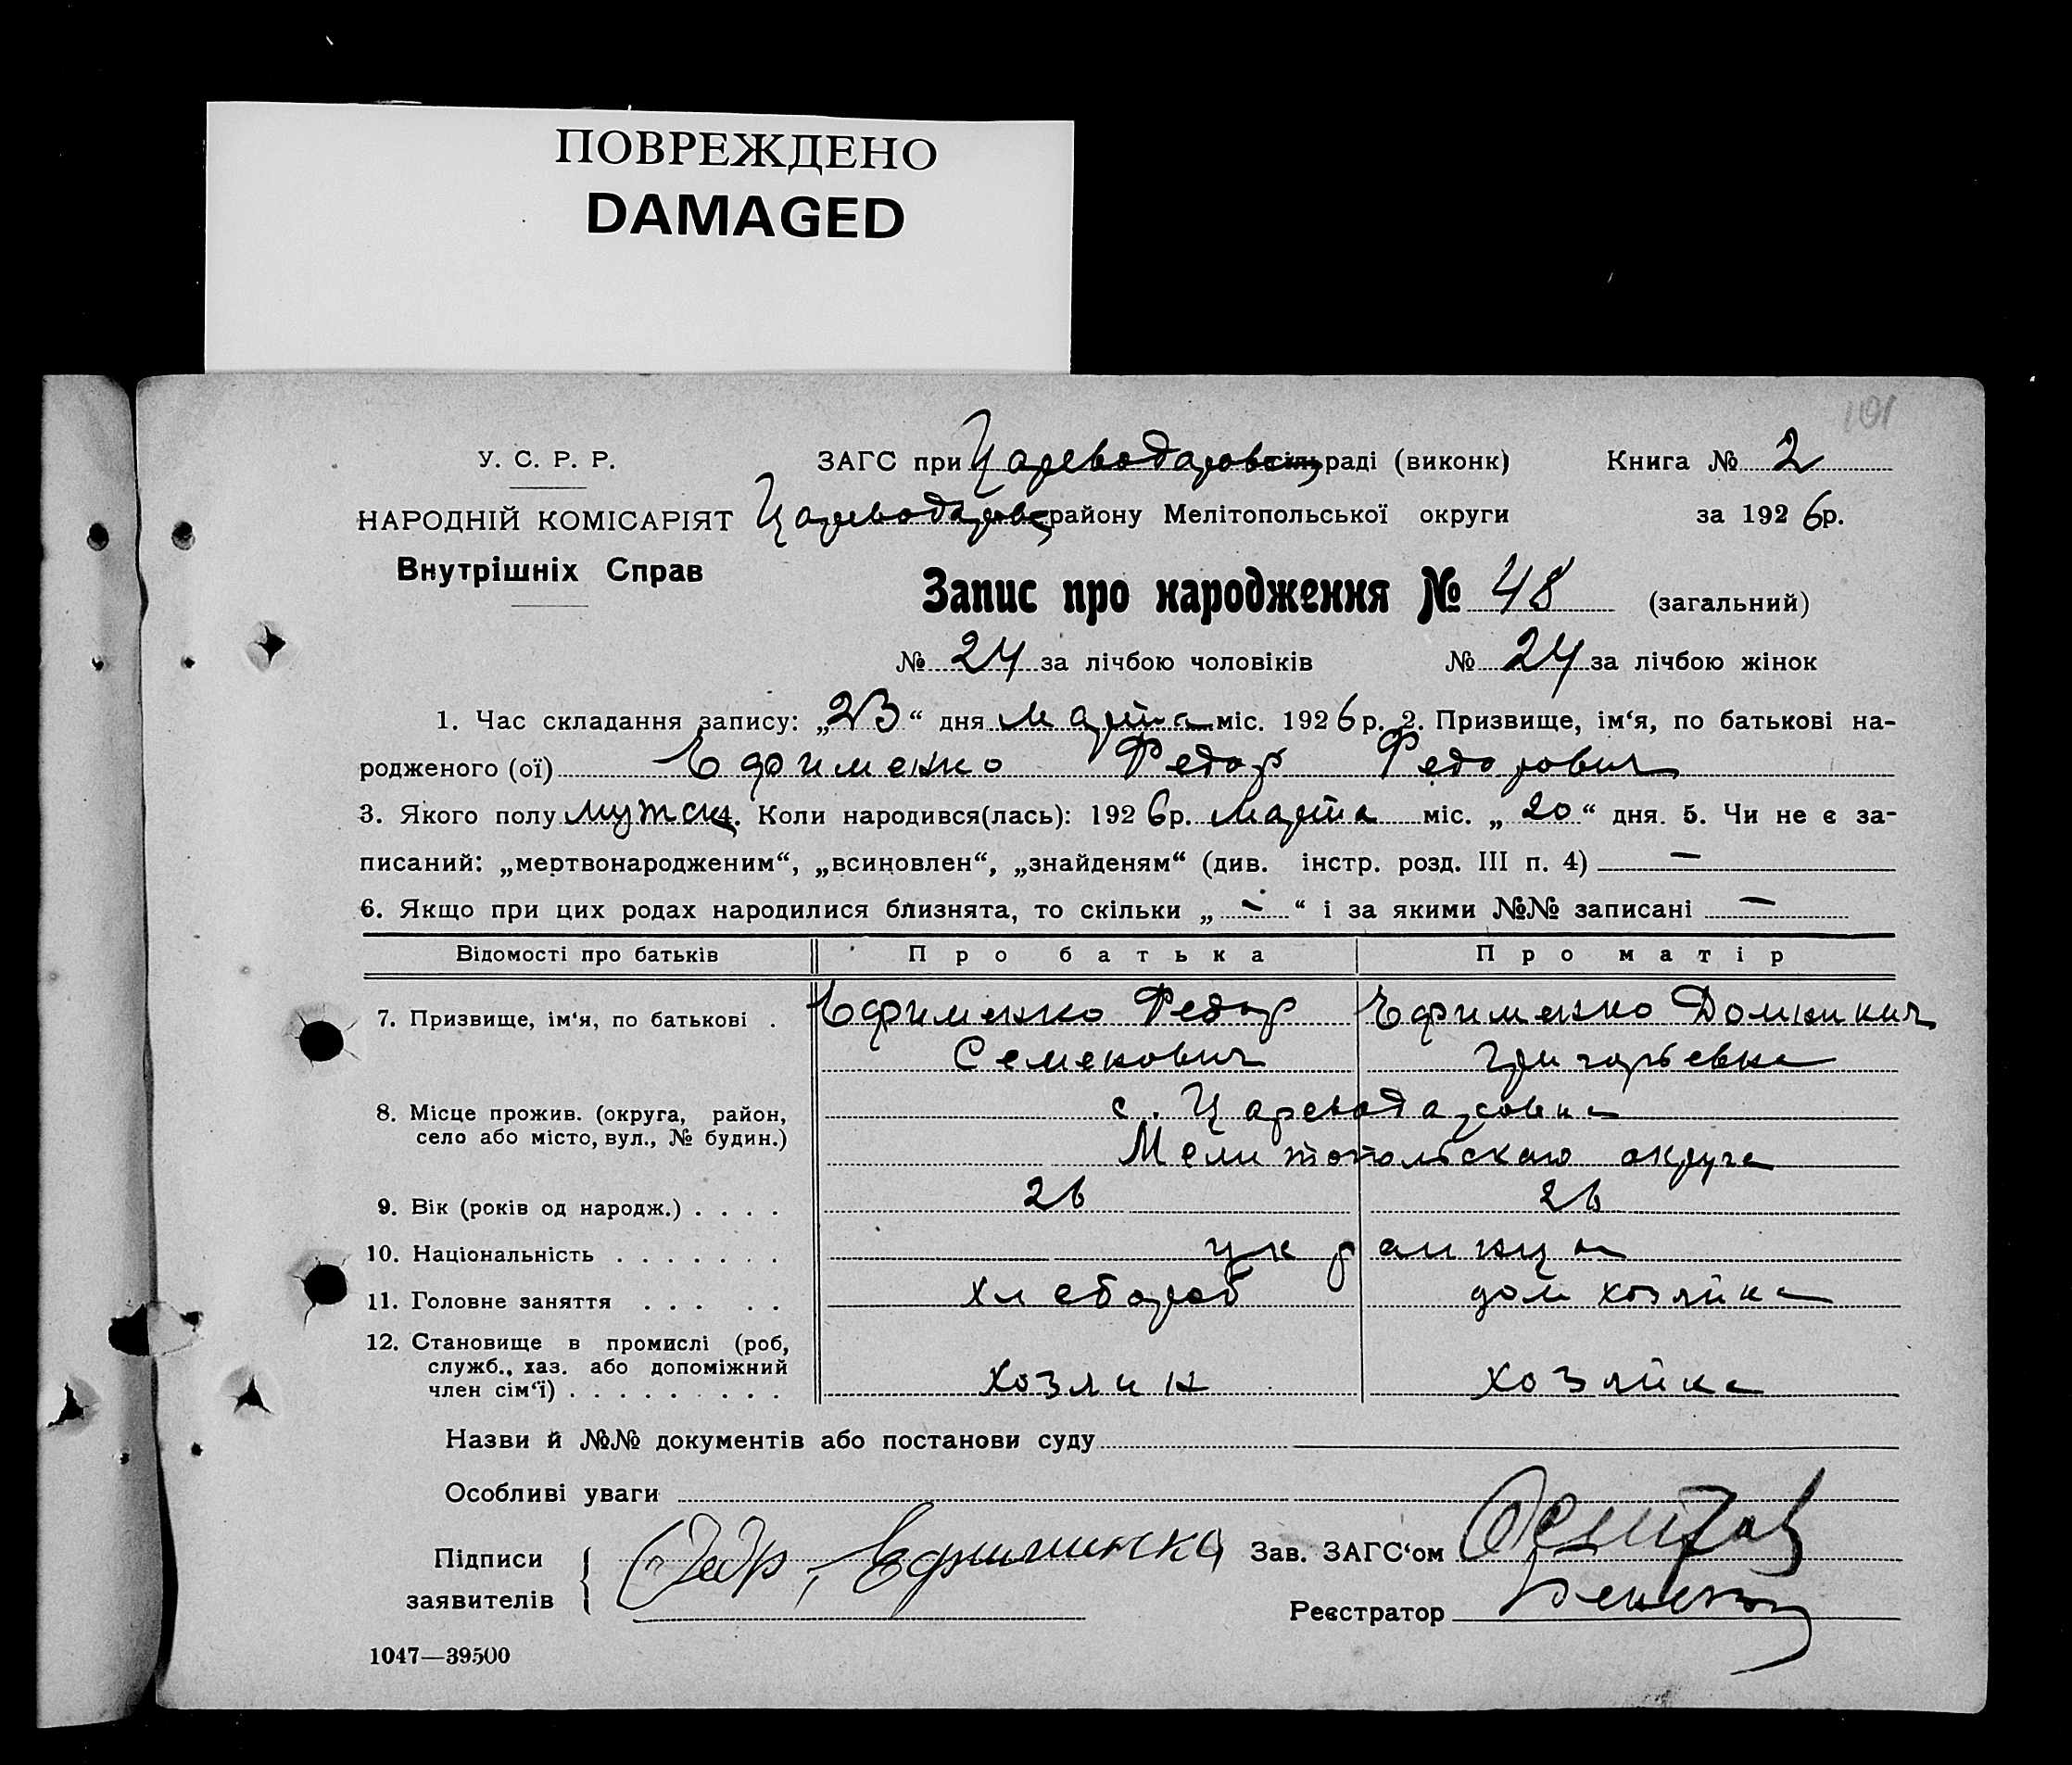 ПОВРЕЖДЕНО
DAMAGED
101
У. С. Р. Р.
ЗАГС при Цареводаровск сільраді (виконк)
Книга № 2
НАРОДНІЙ КОМІСАРІЯТ
Цареводаровск району Мелітопольської округи
за 1926р.
Внутрішніх Справ
Запис про народження № 48 (загальний)
№ 24 за лічбою чоловіків № 24 за лічбою жінок
1. Час складання запису: „23“ дня марта міс. 1926 р. 2. Призвище, ім‘я, по батькові на-
родженого (ої) Ефименко Федор Федорович
3. Якого полу мужск 4. Коли народився(лась): 1926р. марта міс. „20“ дня. 5. Чи не є за-
писаний: „мертвонародженим“, „всиновлен“, „знайденям“ (див. інстр. розд. III п. 4) —
6. Якщо при цих родах народилися близнята, то скільки „-“ і за якими №№ записані —
Відомості про батьків Про батька Про матір
7. Призвище, ім‘я, по батькові . Ефименко Федор Ефименко
Семенович Григорьевна
8. Місце прожив. (округа, район, с. Цареводаровка
село або місто, вул., № будин.)
Мелитопольскаго округа
9. Вік (років од народж.) . . . . 26 26
10. Національність . . . . . . . украинци
11. Головне заняття . . . . . хлебороб дом хозяйка
12. Становище в промислі (роб,
служб., хаз. або допоміжний
член сім‘ї) . . . . . . . . . хозяин хозяйка
Назви й №№ документів або постанови суду
Особливі уваги
Підписи Зав. ЗАГС‘ом
заявителів
Реєстратор
1047—39500